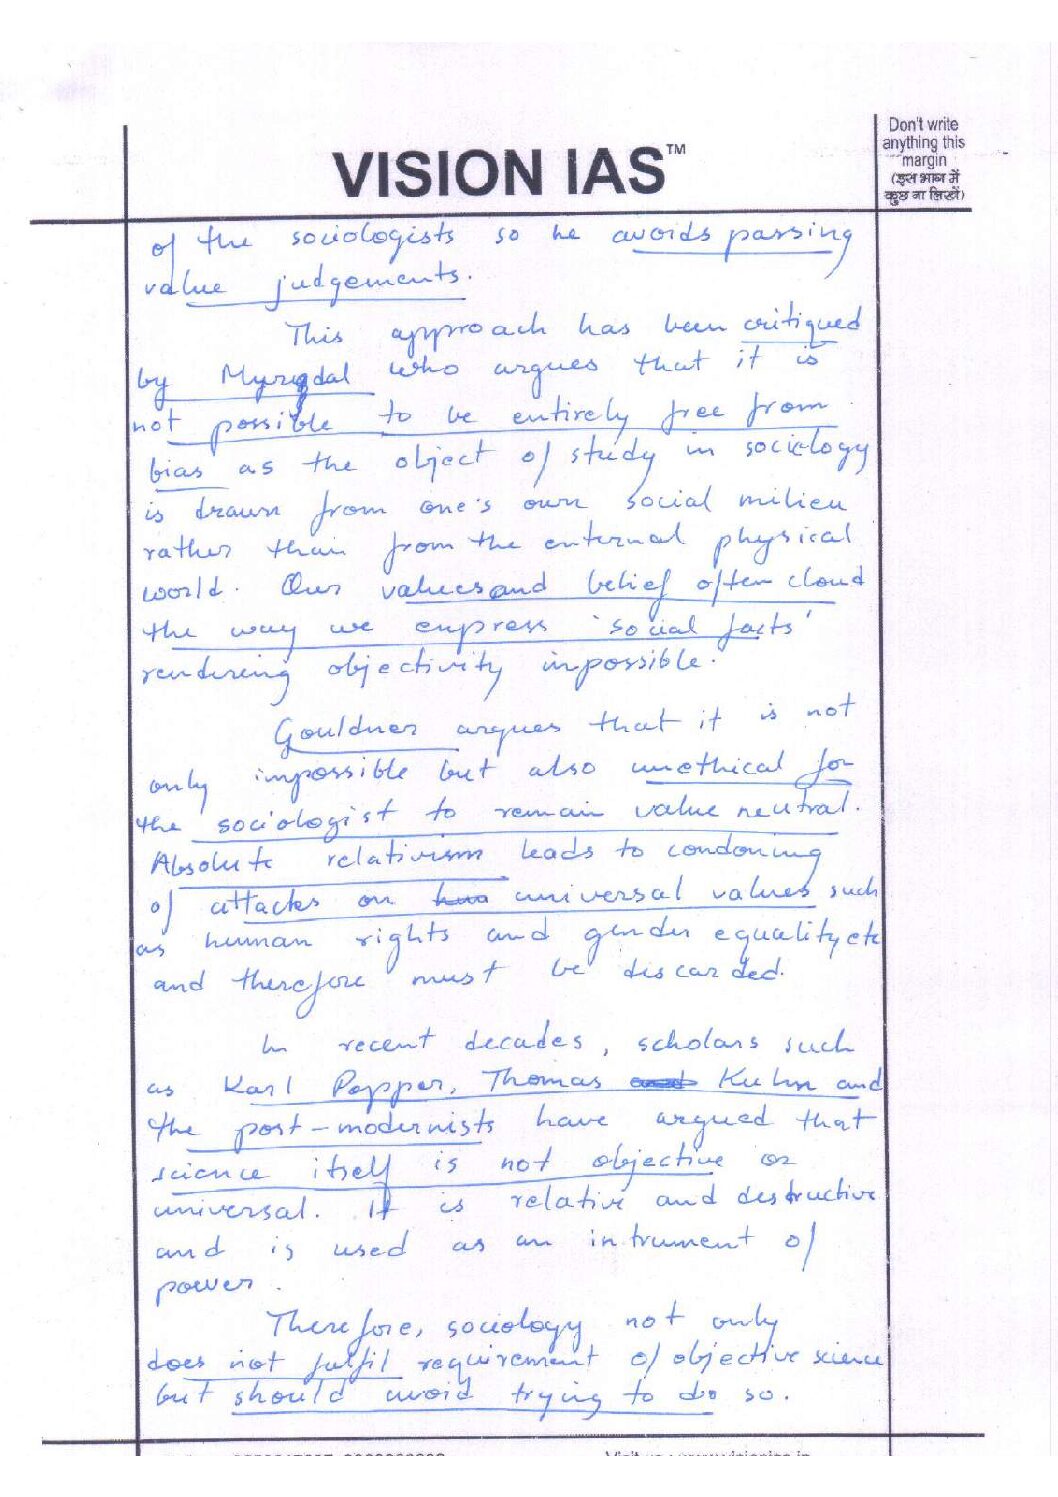 Don't write
anything this
margin
(इस भाग में
कुछ ना लिखें)
VISION IAS™
of the sociologists so he avoids passing
value judgements.
This approach has been critiqued
by Myrdal who argues that it is
not possible to be entirely free from
bias as the object of study in sociology
is drawn from one's own social milieu
rather than from the external physical
world. Our values and belief often cloud
the way we express 'social facts'
rendering objectivity impossible.
Gouldner argues that it is not
only impossible but also unethical for
the sociologist to remain value neutral.
Absolute relativism leads to condoning
of attacks on universal values such
as human rights and gender equality etc
and therefore must be discarded.
In recent decades, scholars such
as Karl Popper, Thomas Kuhn and
the post-modernists have argued that
science itself is not objective or
universal. It is relative and destructive
and is used as an intrument of
power.
Therefore, sociology not only
does not fulfil requirement of objective science
but should avoid trying to do so.